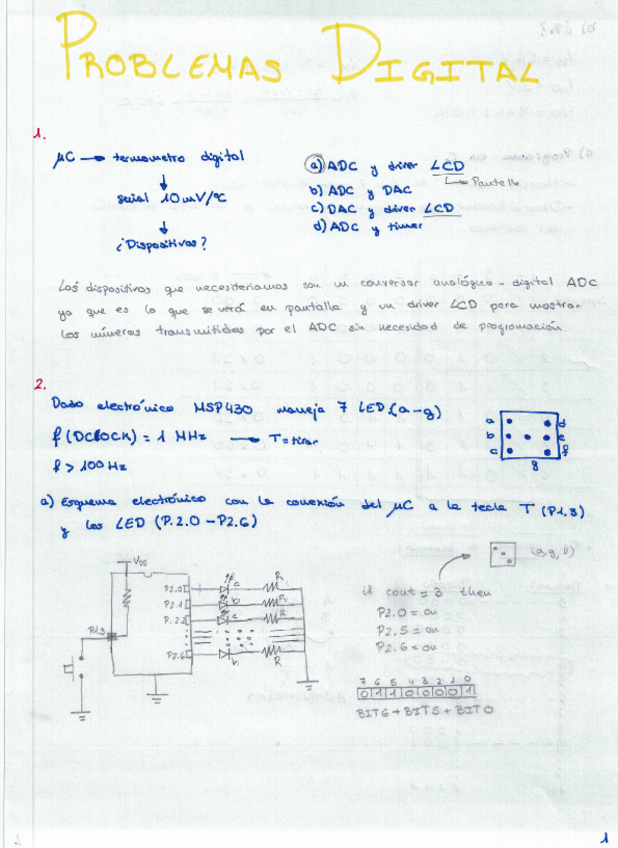 PROBLEMAS DIGITAL
1.
µC → termometro digital
señal 10mV/ºC
¿Dispositivos?
a) ADC y driver LCD
Pantalla
b) ADC y DAC
c) DAC y driver LCD
d) ADC y timer
Los dispositivos que necesitariamos son un conversor analógico-digital ADC
ya que es lo que se verá en pantalla y un driver LCD para mostrar
los números transmitidos por el ADC sin necesidad de programación.
2.
Dado electrónico MSP430 maneja 7 LED (a-g)
f (DCOCLK) = 1 MHz → T = tirar
f > 100 Hz
a b c d e f g
a) Esquema electrónico con la conexión del µC a la tecla T (P1.3)
y los LED (P.2.0 - P2.6)
VDD
P1.3
P2.0 a R
P2.1 b R
P.2.2 c R
P2.6 R
(a,g,f)
if cout = 3 then
P2.0 = on
P2.5 = on
P2.6 = on
7 6 5 4 3 2 1 0
0 1 1 0 0 0 0 1
BIT6 + BIT5 + BIT0
1